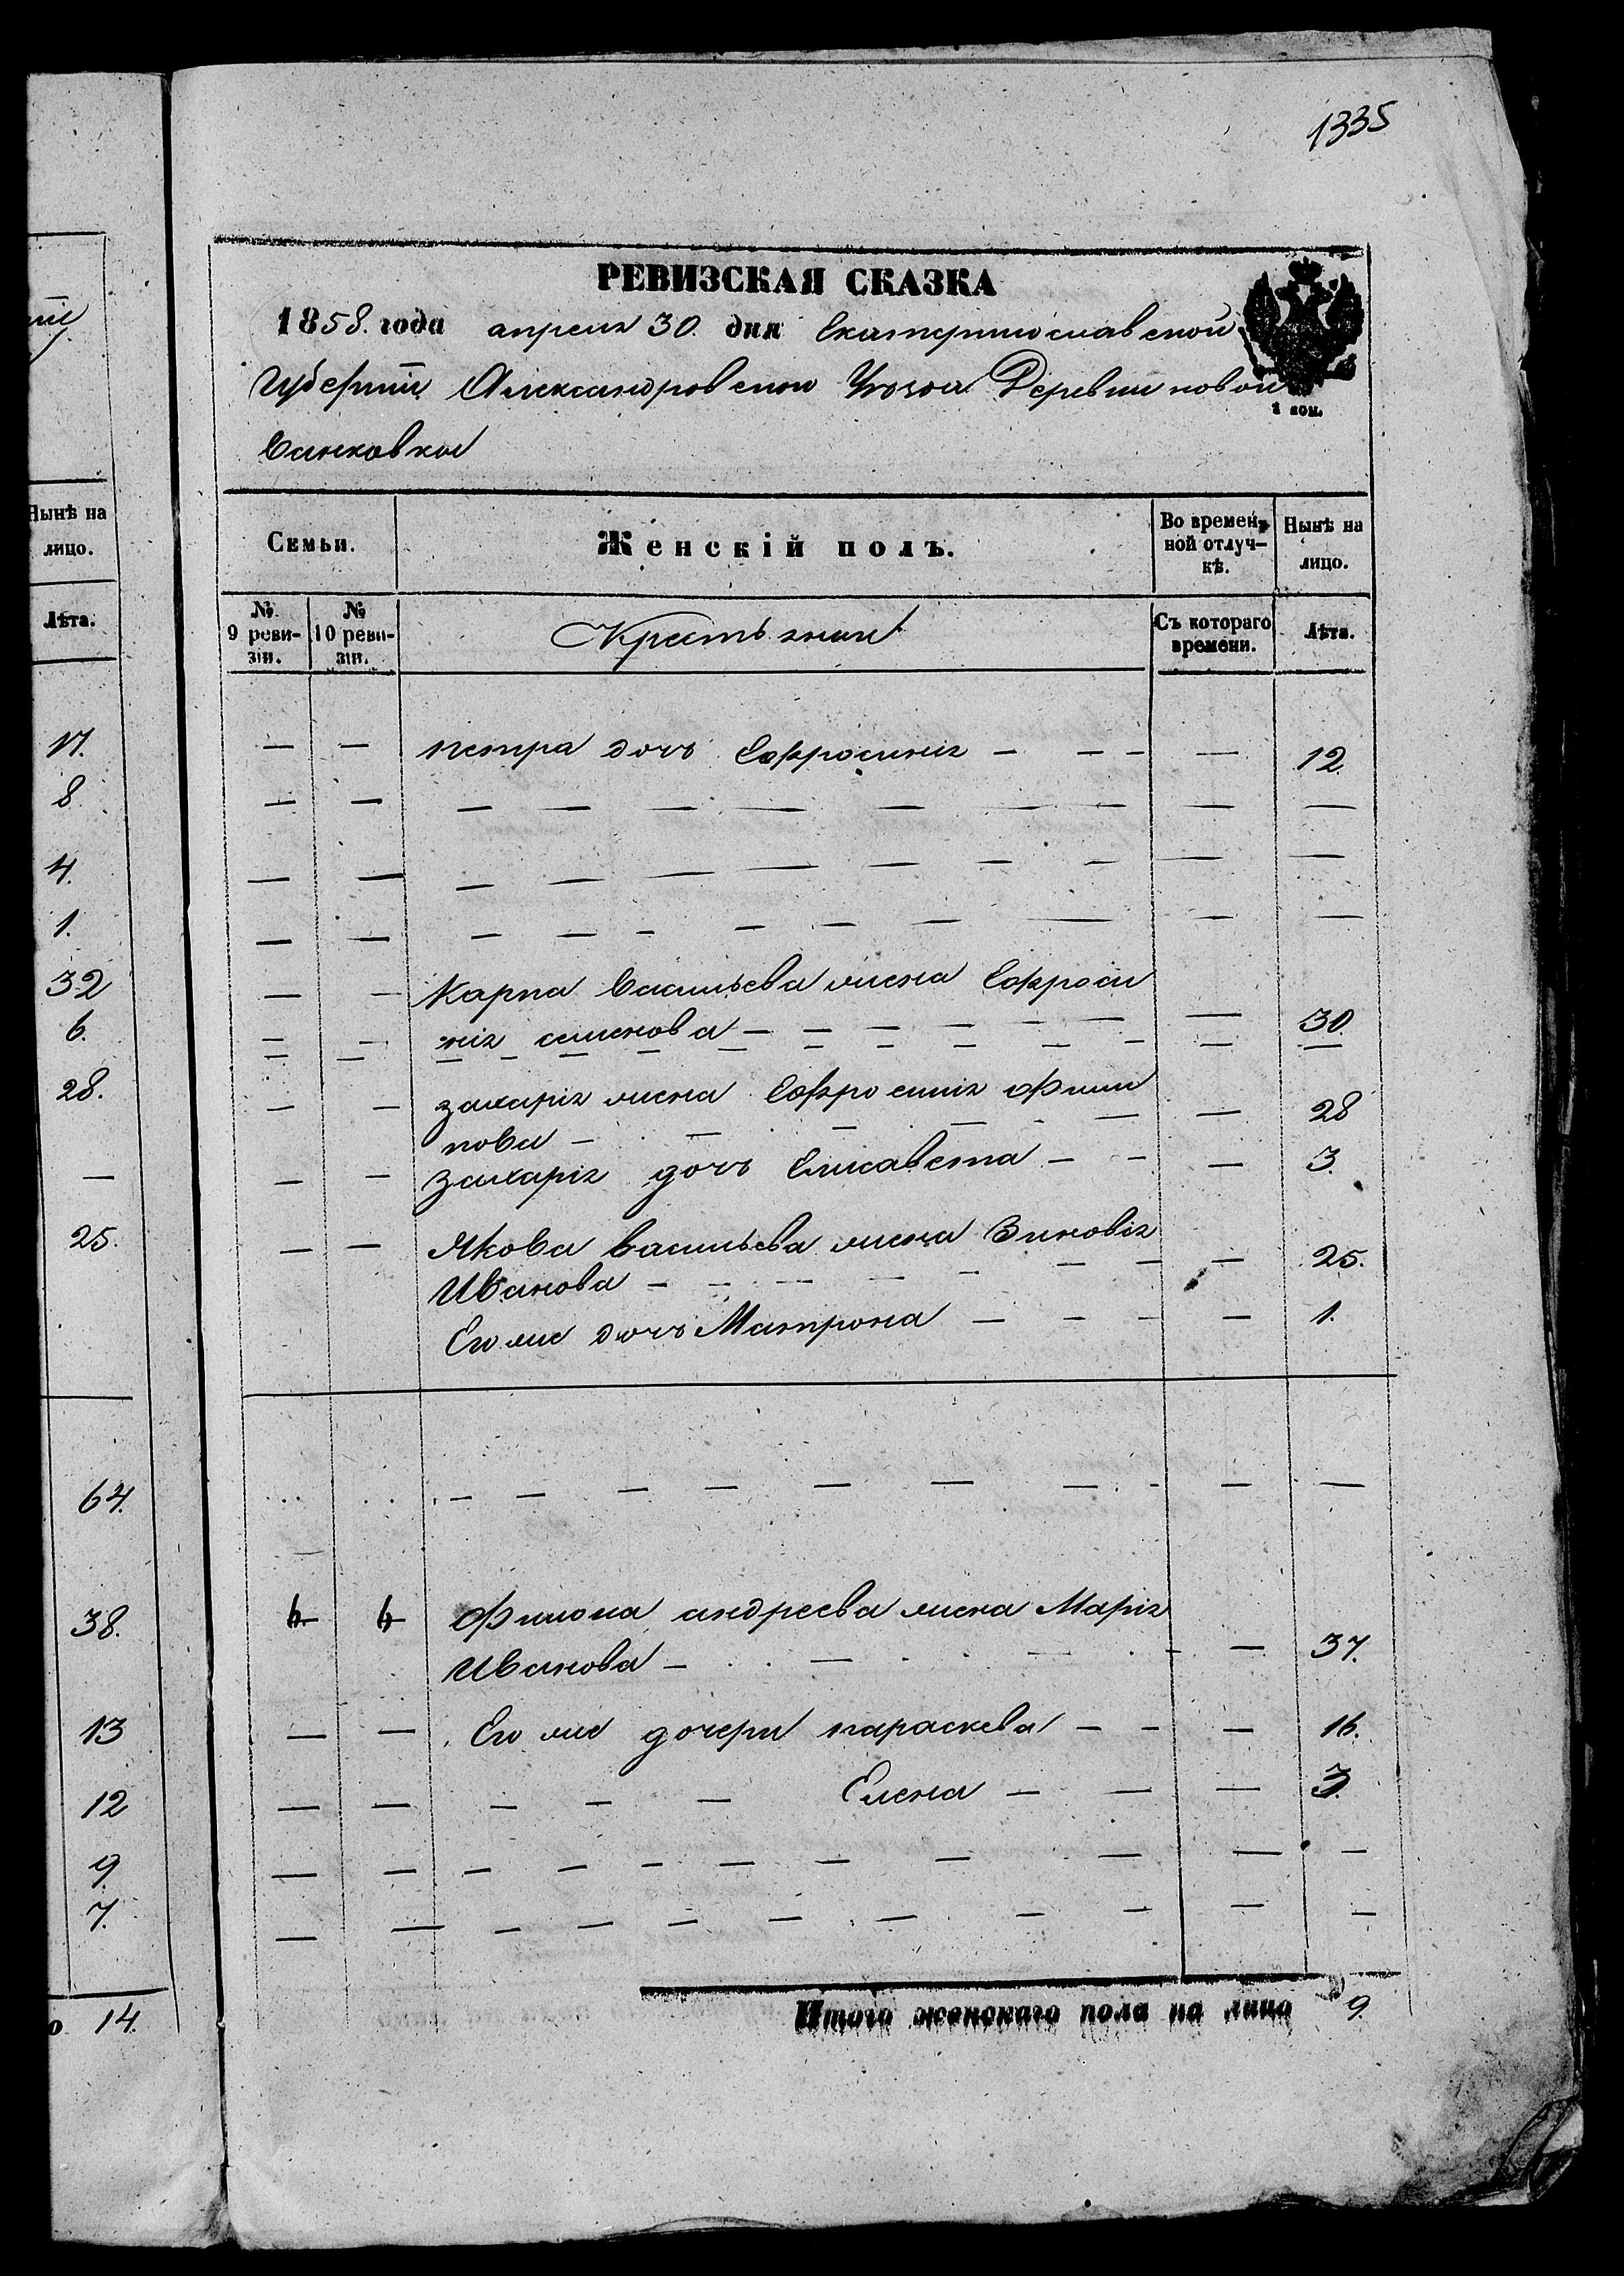 1335
РЕВИЗСКАЯ СКАЗКА
1858. года апреля 30. дня Екатеринославской
Губерніи Александровскаго Уезда Деревни новой
1 коп.
Нынѣ на лицо.
Лѣта.
Семьи.
Женскій полъ.
Во времен- ной отлуч- кѣ.
Нынѣ на лицо.
№ 9 реви- зіи.
№ 10 реви- зіи.
Крестьянки
Съ котораго времени.
Лѣта.
17. — — петра дочь Ефросинія — — — — 12.
8. — — — — — — — — — — —
4. — — — — — — — — — — —
1. — — — — — — — — — — —
32 — — Карпа Васильева жена Ефроси
6. — — нія семенова — — — — — — — 30.
28. — — захарія жена Ефросинія Фили
пова — — — — — — 28
— — — Захарія дочь Елисавета — — — 3.
25. — — Якова Васильева жена Зиновія
Иванова — — — — — — — — 25.
Его же дочь Матрона — — — — 1.
64. — — — — — — — — —
38. 6 6 Филона андреева жена Марія
Иванова — — — — 37.
13 — — Его же дочери параскева — — — 16.
12 — — — — — Елена — — — 3.
9. — — — — — — — — — — —
7. — — — — — — — — — — —
о 14.
Итого женскаго пола на лицо 9.